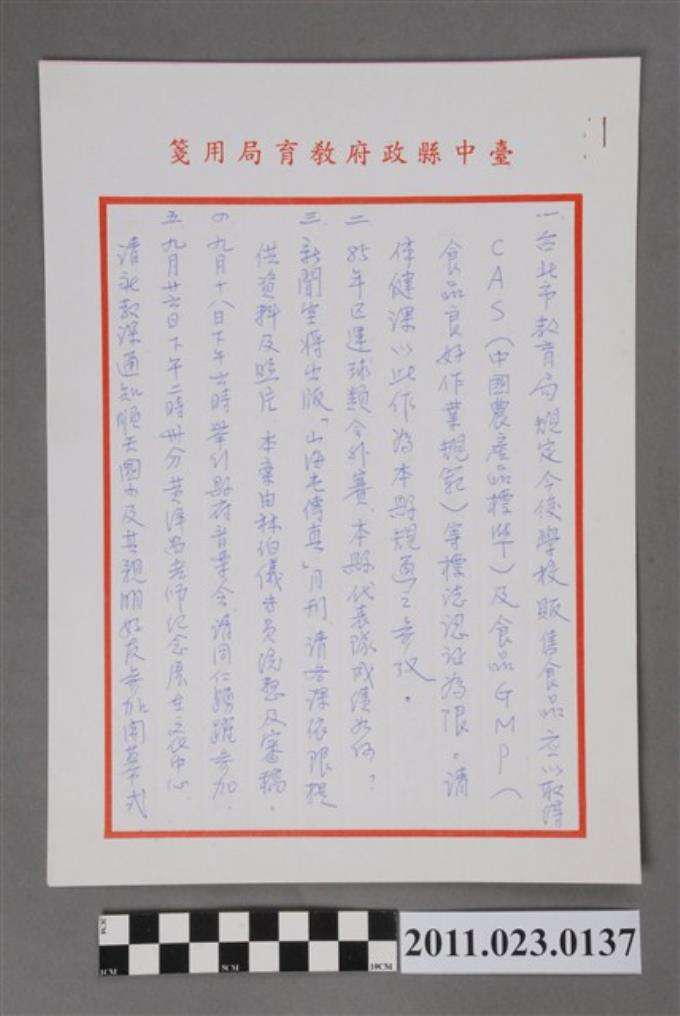 臺中縣政府教育局用箋
一、台北市教育局規定今後學校販售食品應以取得
CAS(中國農產品標準)及食品GMP(
食品良好作業規範)等標誌認証為限。請
体健課以此作為本縣規畫之參攷。
二 85年区運球類会外賽,本縣代表隊成績如何?
三 新聞室將出版「山海屯傳真」月刊請各課依限提
供資料及照片,本案由林伯儀專員統整及審稿。
四 九月十八日下午六時舉行縣府音樂会,請同仁踴躍參加,
五 九月廿六日下午二時卅分黃澤昌老師纪念展在文化中心,
請社教課通知順天國小及其親朋好友參加開幕式,
2011.023.0137
1CM
5CM
10CM